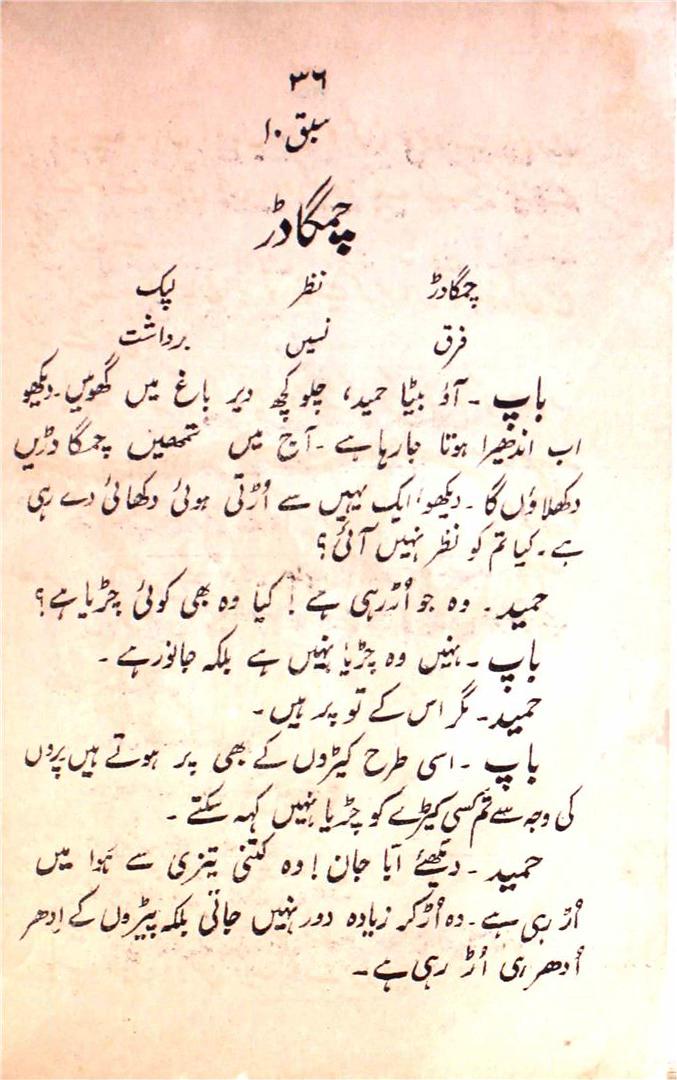 ۳۶
سبق ۱۰
چمگادڑ
چمگادڑ نظر لپک
فرق نسیں برداشت
باپ ۔ آؤ بیٹا حمید، چلو کچھ دیر باغ میں گھومیں۔ دیکھو
اب اندھیرا ہوتا جا رہا ہے ۔ آج میں تمھیں چمگادڑیں
دکھلاؤں گا ۔ دیکھو ایک یہیں سے اُڑتی ہوئی دکھائی دے رہی
ہے ۔ کیا تم کو نظر نہیں آئی ؟
حمید ۔ وہ جو اُڑ رہی ہے ! کیا وہ بھی کوئی چڑیا ہے ؟
باپ ۔ نہیں وہ چڑیا نہیں ہے بلکہ جانور ہے ۔
حمید ۔ مگر اس کے تو پر ہیں ۔
باپ ۔ اسی طرح کیڑوں کے بھی پر ہوتے ہیں پروں
کی وجہ سے تم کسی کیڑے کو چڑیا نہیں کہہ سکتے ۔
حمید ۔ دیکھئے ابّا جان ! وہ کتنی تیزی سے ہوا میں
اُڑ رہی ہے ۔ وہ اُڑ کر زیادہ دور نہیں جاتی بلکہ پیڑوں کے اِدھر
اُدھر ہی اُڑ رہی ہے ۔